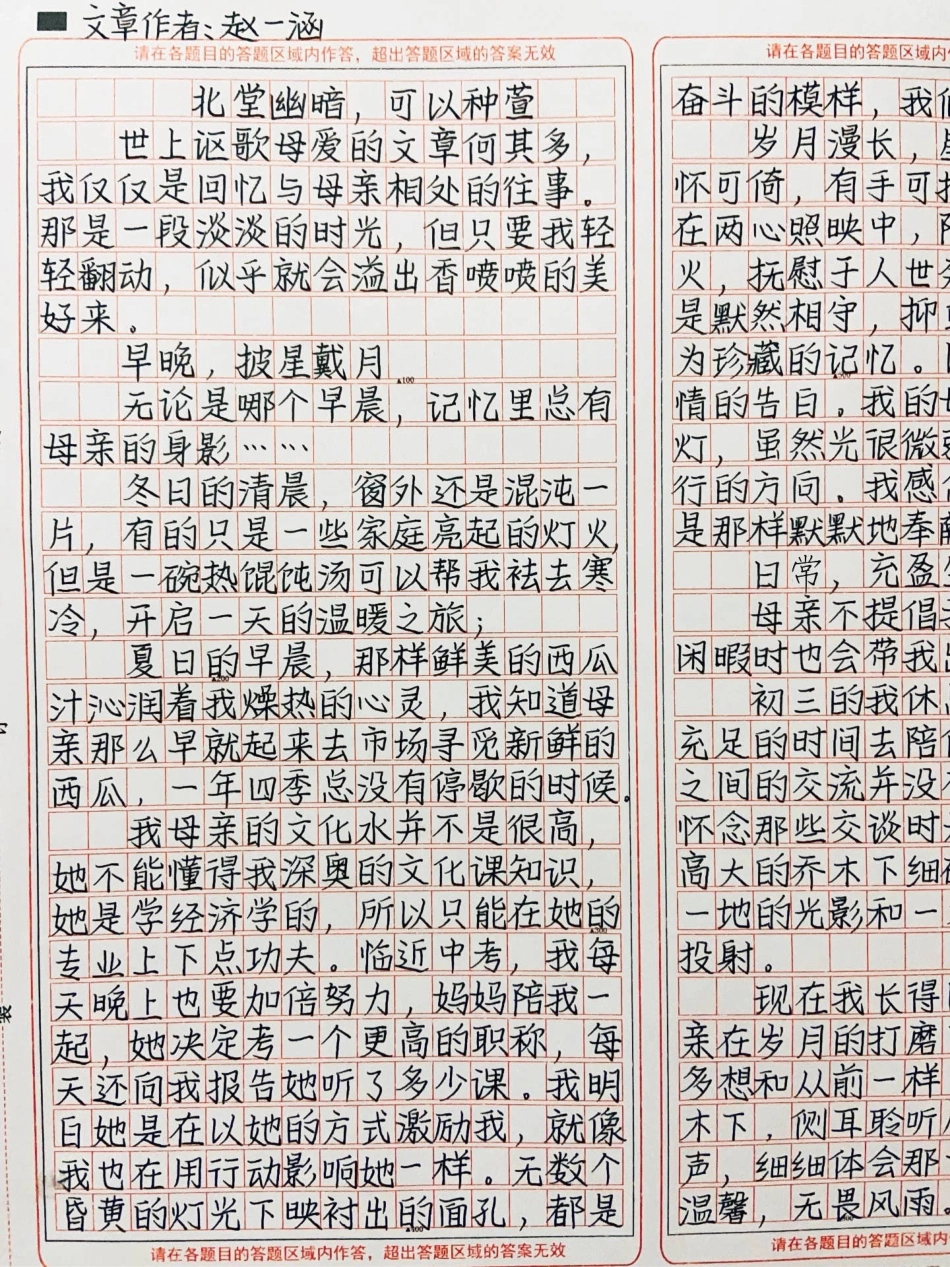 文章作者：赵一涵
请在各题目的答题区域内作答，超出答题区域的答案无效
北堂幽暗，可以种萱
世上讴歌母爱的文章何其多，
我仅仅是回忆与母亲相处的往事。
那是一段淡淡的时光，但只要我轻
轻翻动，似乎就会溢出香喷喷的美
好来。
早晚，披星戴月
▲100
无论是哪个早晨，记忆里总有
母亲的身影……
冬日的清晨，窗外还是混沌一
片，有的只是一些家庭亮起的灯火，
但是一碗热馄饨汤可以帮我祛去寒
冷，开启一天的温暖之旅；
夏日的早晨，那样鲜美的西瓜
▲200
汁沁润着我燥热的心灵，我知道母
亲那么早就起来去市场寻觅新鲜的
西瓜，一年四季总没有停歇的时候。
我母亲的文化水并不是很高，
她不能懂得我深奥的文化课知识，
她是学经济学的，所以只能在她的
▲300
专业上下点功夫。临近中考，我每
天晚上也要加倍努力，妈妈陪我一
起，她决定考一个更高的职称，每
天还向我报告她听了多少课。我明
白她是在以她的方式激励我，就像
我也在用行动影响她一样。无数个
昏黄的灯光下映衬出的面孔，都是
▲400
请在各题目的答题区域内作答，超出答题区域的答案无效
请在各题目的答题区域内
奋斗的模样，我们
岁月漫长，
怀可倚，有手可
在两心照映中，
火，抚慰于人世
是默然相守，抑
为珍藏的记忆。
情的告白。我的
灯，虽然光很微
行的方向。我感
是那样默默地奉献
日常，充盈
母亲不提倡
闲暇时也会带我
初三的我休
充足的时间去陪
之间的交流并没
怀念那些交谈时
高大的乔木下细
一地的光影和一
投射。
现在我长得
亲在岁月的打磨
多想和从前一样
木下，侧耳聆听
声，细细体会那
温馨，无畏风雨。
请在各题目的答题区域内